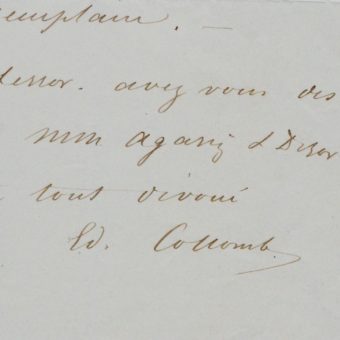 exemplaire. —
avez vous des
MM agassiz & Desor
tout dévoué
Ed. Collomb